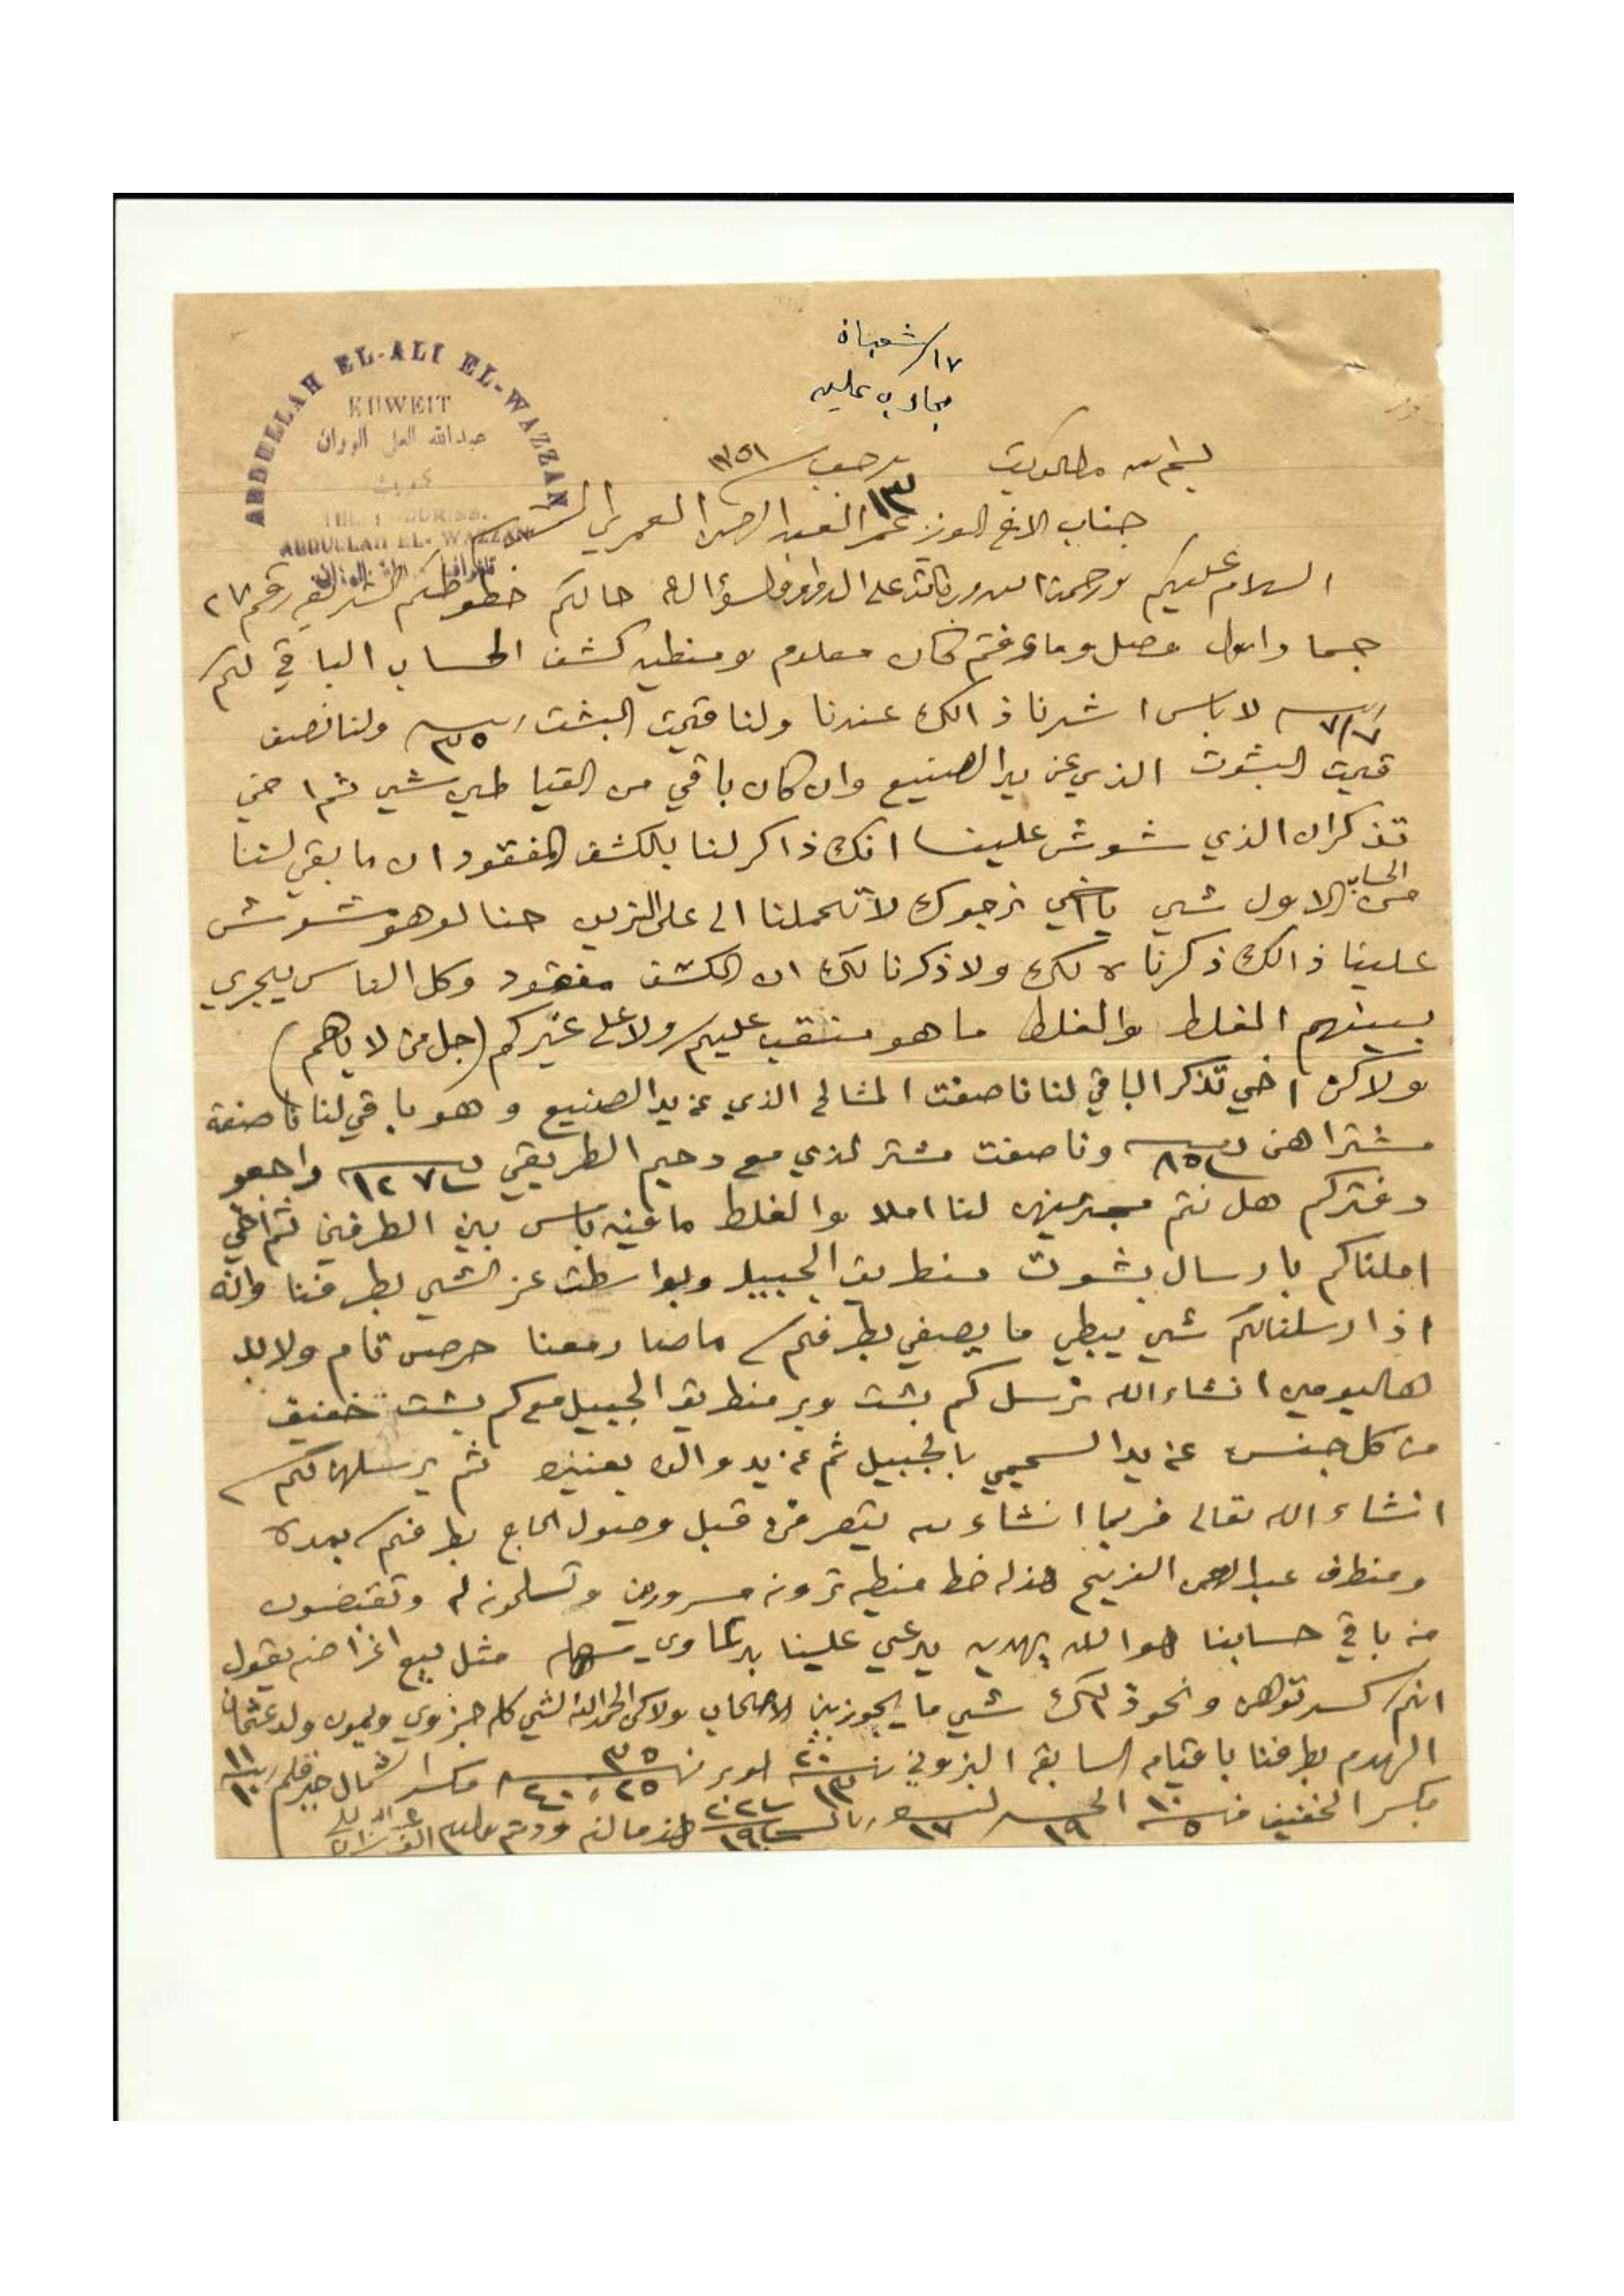 ١٧/شعبان
مجاوب عليه
ABDULLAH EL-ALI EL-WAZZAN
KUWEIT
عبدالله العلي الوزان
كويت
ABDULLAH EL-WAZZAN
بسم الله من الكويت ١٣ رجب ١٣٥١
جناب الاخ العزيز عمر العبد الرحمن العمري المحترم
السلام عليكم ورحمة الله وبركاته على الدوام والسؤال عن حالكم خطوطكم الشريفه رقم ٢٧
جما واول وصل وما عرفتم كان معلوم ومنطيه كشف الحساب الباقي لكم
٧/٧ لاباس اشرنا ذالك عندنا ولنا قيمت البشت ٣٥ ولنا نصف
قيمت البشوت الذي عن يد الصنيع وان كان باقي من القيا شي ثم اخي
تذكر ان الذي شوش علينا انك ذاكر لنا بالكشف المفقود ان ما بقي لنا
من الحساب الاول شي يا اخي نرجوك لا تحملنا الى على الزين حنا لو هو شوش
علينا ذالك ذكرناه لك ولا ذكرنا لك ان الكشف مفقود وكل الناس يجري
بينهم الغلط والغلط ما هو منتقب عليكم ولا على غيركم (جل من لا ياهم)
ولاكن اخي تذكر الباقي لنا ناصفت المشالح الذي عن يد الصنيع وهو باقي لنا ناصفة
مشتراهن ٨٥ وناصفت مشتر لذي مع دحيم الطريقي ١٢٧ راجعو
دفتركم هل نتم لنا املا والغلط ما فيه باس بين الطرفين ثم اخي
املناكم بارسال بشوت منطريق الجبيل وبواسطت عز الشي بطرفنا وانه
اذا رسلنالكم شي يبطي ما يصيفي بطرفكم ما صار معنا حرص تام ولابد
هاليومين انشاءالله نرسل لكم بشت وبر منطريق الجبيل معكم بشت خفيف
من كل جنس عن يد السحيمي بالجبيل ثم عن يد والده بعنيزه ثم يرسلهن لكم
انشاء الله تعالى فربما انشاء الله يتصرفن قبل وصول الحاج بطرفكم بمده
ومنطرف عبدالرحمن الفريح هذله خط منطيه ترونه مسرورين وتسلمونه له وتقبضون
منه باقي حسابنا هو الله يهديه يدعي علينا بدعاوي مثل بيع اغراضه يقول
انكم كسدتوهن ونحو ذالك شي ما يجوز بين الاصحاب ولاكن الحمد لله الشي كله جزوي وليمون ولد عثمان
الهدم بطرفنا باقيامه السابقه البزوني ٢٠ ١٣ لوبر ٣٥ ٢٥ ٢٤٠ مكسر الشمال ١١ ١٠
مكسر الخفيف ١٠ ٥ ١٩ ١٧ ٢٠٢ ١٩ هذا مالزم ودمتم عبدالله العلي الوزان